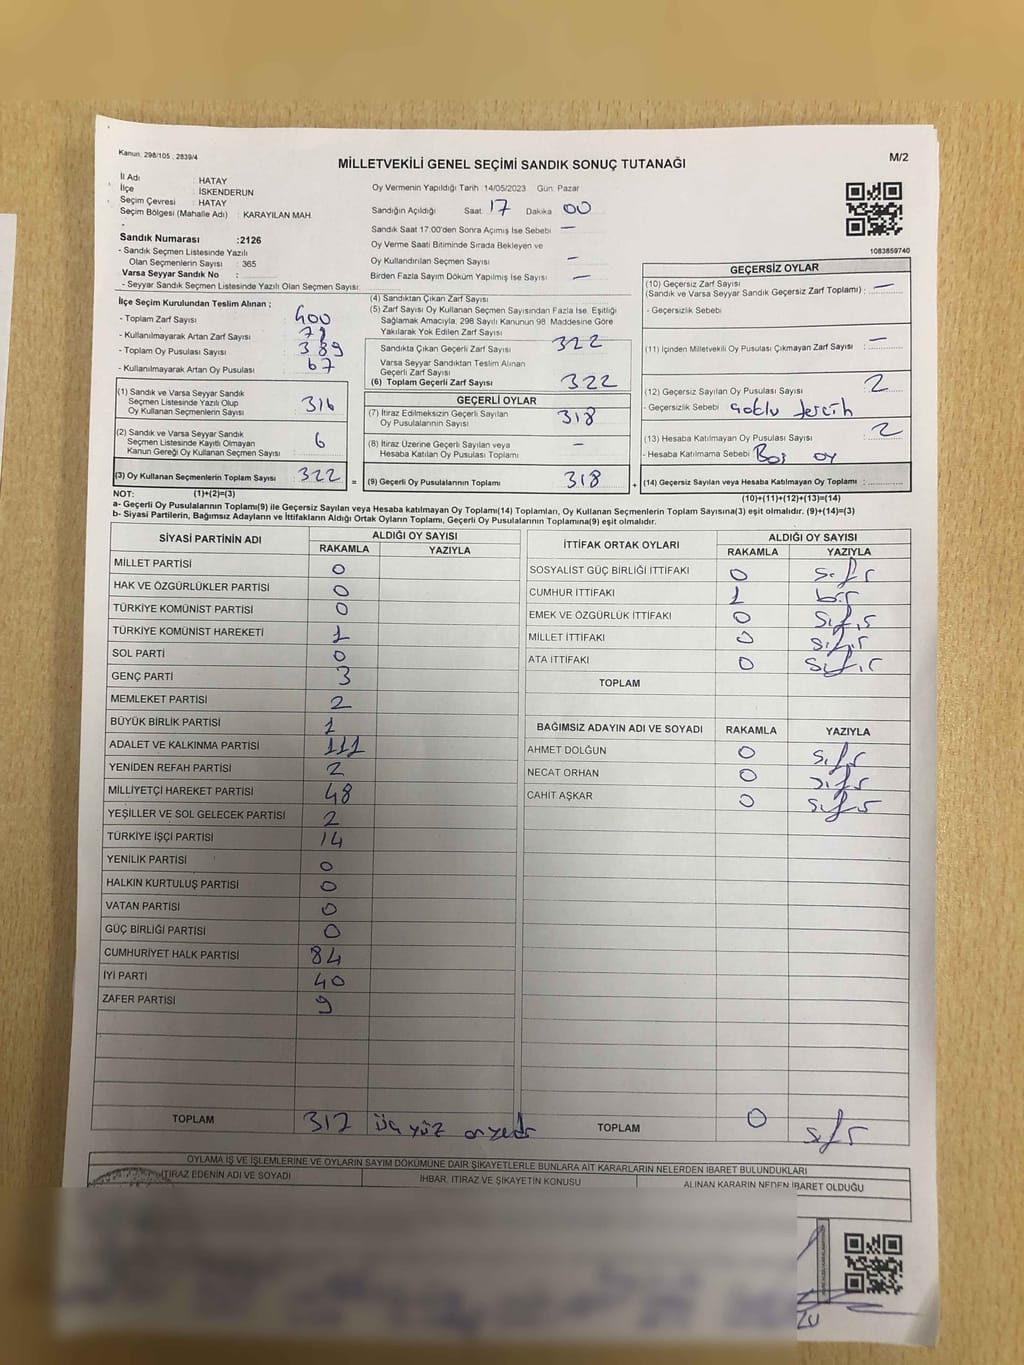 Kanun: 298/105 , 2839/4
MİLLETVEKİLİ GENEL SEÇİMİ SANDIK SONUÇ TUTANAĞI
M/2
İl Adı : HATAY
İlçe : İSKENDERUN
Seçim Çevresi : HATAY
Seçim Bölgesi (Mahalle Adı) : KARAYILAN MAH.
Sandık Numarası :2126
- Sandık Seçmen Listesinde Yazılı
Olan Seçmenlerin Sayısı : 365
Varsa Seyyar Sandık No :
- Seyyar Sandık Seçmen Listesinde Yazılı Olan Seçmen Sayısı:
Oy Vermenin Yapıldığı Tarih 14/05/2023 Gün: Pazar
Sandığın Açıldığı Saat: 17 Dakika 00
Sandık Saat 17:00'den Sonra Açımış İse Sebebi —
Oy Verme Saati Bitiminde Sırada Bekleyen ve
Oy Kullandırılan Seçmen Sayısı —
Birden Fazla Sayım Döküm Yapılmış İse Sayısı —
1083859740
İlçe Seçim Kurulundan Teslim Alınan ;
- Toplam Zarf Sayısı : 400
- Kullanılmayarak Artan Zarf Sayısı :
- Toplam Oy Pusulası Sayısı : 389
- Kullanılmayarak Artan Oy Pusulası : 67
(1) Sandık ve Varsa Seyyar Sandık
Seçmen Listesinde Yazılı Olup
Oy Kullanan Seçmenlerin Sayısı : 316
(2) Sandık ve Varsa Seyyar Sandık
Seçmen Listesinde Kayıtlı Olmayan
Kanun Gereği Oy Kullanan Seçmen Sayısı : 6
(3) Oy Kullanan Seçmenlerin Toplam Sayısı : 322
(4) Sandıktan Çıkan Zarf Sayısı
(5) Zarf Sayısı Oy Kullanan Seçmen Sayısından Fazla İse, Eşitliği
Sağlamak Amacıyla; 298 Sayılı Kanunun 98. Maddesine Göre
Yakılarak Yok Edilen Zarf Sayısı
Sandıkta Çıkan Geçerli Zarf Sayısı 322
Varsa Seyyar Sandıktan Teslim Alınan
Geçerli Zarf Sayısı
(6) Toplam Geçerli Zarf Sayısı 322
GEÇERLİ OYLAR
(7) İtiraz Edilmeksizin Geçerli Sayılan
Oy Pusulalarının Sayısı: 318
(8) İtiraz Üzerine Geçerli Sayılan veya
Hesaba Katılan Oy Pusulası Toplamı —
= (9) Geçerli Oy Pusulalarının Toplamı : 318
GEÇERSİZ OYLAR
(10) Geçersiz Zarf Sayısı
(Sandık ve Varsa Seyyar Sandık Geçersiz Zarf Toplamı) : —
- Geçersizlik Sebebi
(11) İçinden Milletvekili Oy Pusulası Çıkmayan Zarf Sayısı : —
(12) Geçersiz Sayılan Oy Pusulası Sayısı : 2
- Geçersizlik Sebebi çoklu tercih
(13) Hesaba Katılmayan Oy Pusulası Sayısı : 2
- Hesaba Katılmama Sebebi Boş oy
+ (14) Geçersiz Sayılan veya Hesaba Katılmayan Oy Toplamı :
NOT: (1)+(2)=(3)
(10)+(11)+(12)+(13)=(14)
a- Geçerli Oy Pusulalarının Toplamı(9) ile Geçersiz Sayılan veya Hesaba katılmayan Oy Toplamı(14) Toplamları, Oy Kullanan Seçmenlerin Toplam Sayısına(3) eşit olmalıdır. (9)+(14)=(3)
b- Siyasi Partilerin, Bağımsız Adayların ve İttifakların Aldığı Ortak Oyların Toplamı, Geçerli Oy Pusulalarının Toplamına(9) eşit olmalıdır.
SİYASİ PARTİNİN ADI ALDIĞI OY SAYISI
RAKAMLA YAZIYLA
MİLLET PARTİSİ 0
HAK VE ÖZGÜRLÜKLER PARTİSİ 0
TÜRKİYE KOMÜNİST PARTİSİ 0
TÜRKİYE KOMÜNİST HAREKETİ 1
SOL PARTİ 0
GENÇ PARTİ 3
MEMLEKET PARTİSİ 2
BÜYÜK BİRLİK PARTİSİ 1
ADALET VE KALKINMA PARTİSİ 111
YENİDEN REFAH PARTİSİ 2
MİLLİYETÇİ HAREKET PARTİSİ 48
YEŞİLLER VE SOL GELECEK PARTİSİ 2
TÜRKİYE İŞÇİ PARTİSİ 14
YENİLİK PARTİSİ 0
HALKIN KURTULUŞ PARTİSİ 0
VATAN PARTİSİ 0
GÜÇ BİRLİĞİ PARTİSİ 0
CUMHURİYET HALK PARTİSİ 84
İYİ PARTİ 40
ZAFER PARTİSİ 9
TOPLAM 317 üç yüz onyedi
İTTİFAK ORTAK OYLARI ALDIĞI OY SAYISI
RAKAMLA YAZIYLA
SOSYALİST GÜÇ BİRLİĞİ İTTİFAKI 0 sıfır
CUMHUR İTTİFAKI 1 bir
EMEK VE ÖZGÜRLÜK İTTİFAKI 0 sıfır
MİLLET İTTİFAKI 0 sıfır
ATA İTTİFAKI 0 sıfır
TOPLAM
BAĞIMSIZ ADAYIN ADI VE SOYADI RAKAMLA YAZIYLA
AHMET DOLĞUN 0 sıfır
NECAT ORHAN 0 sıfır
CAHİT AŞKAR 0 sıfır
TOPLAM 0 sıfır
OYLAMA İŞ VE İŞLEMLERİNE VE OYLARIN SAYIM DÖKÜMÜNE DAİR ŞİKAYETLERLE BUNLARA AİT KARARLARIN NELERDEN İBARET BULUNDUKLARI
İTİRAZ EDENİN ADI VE SOYADI İHBAR, İTİRAZ VE ŞİKAYETİN KONUSU ALINAN KARARIN NEDEN İBARET OLDUĞU